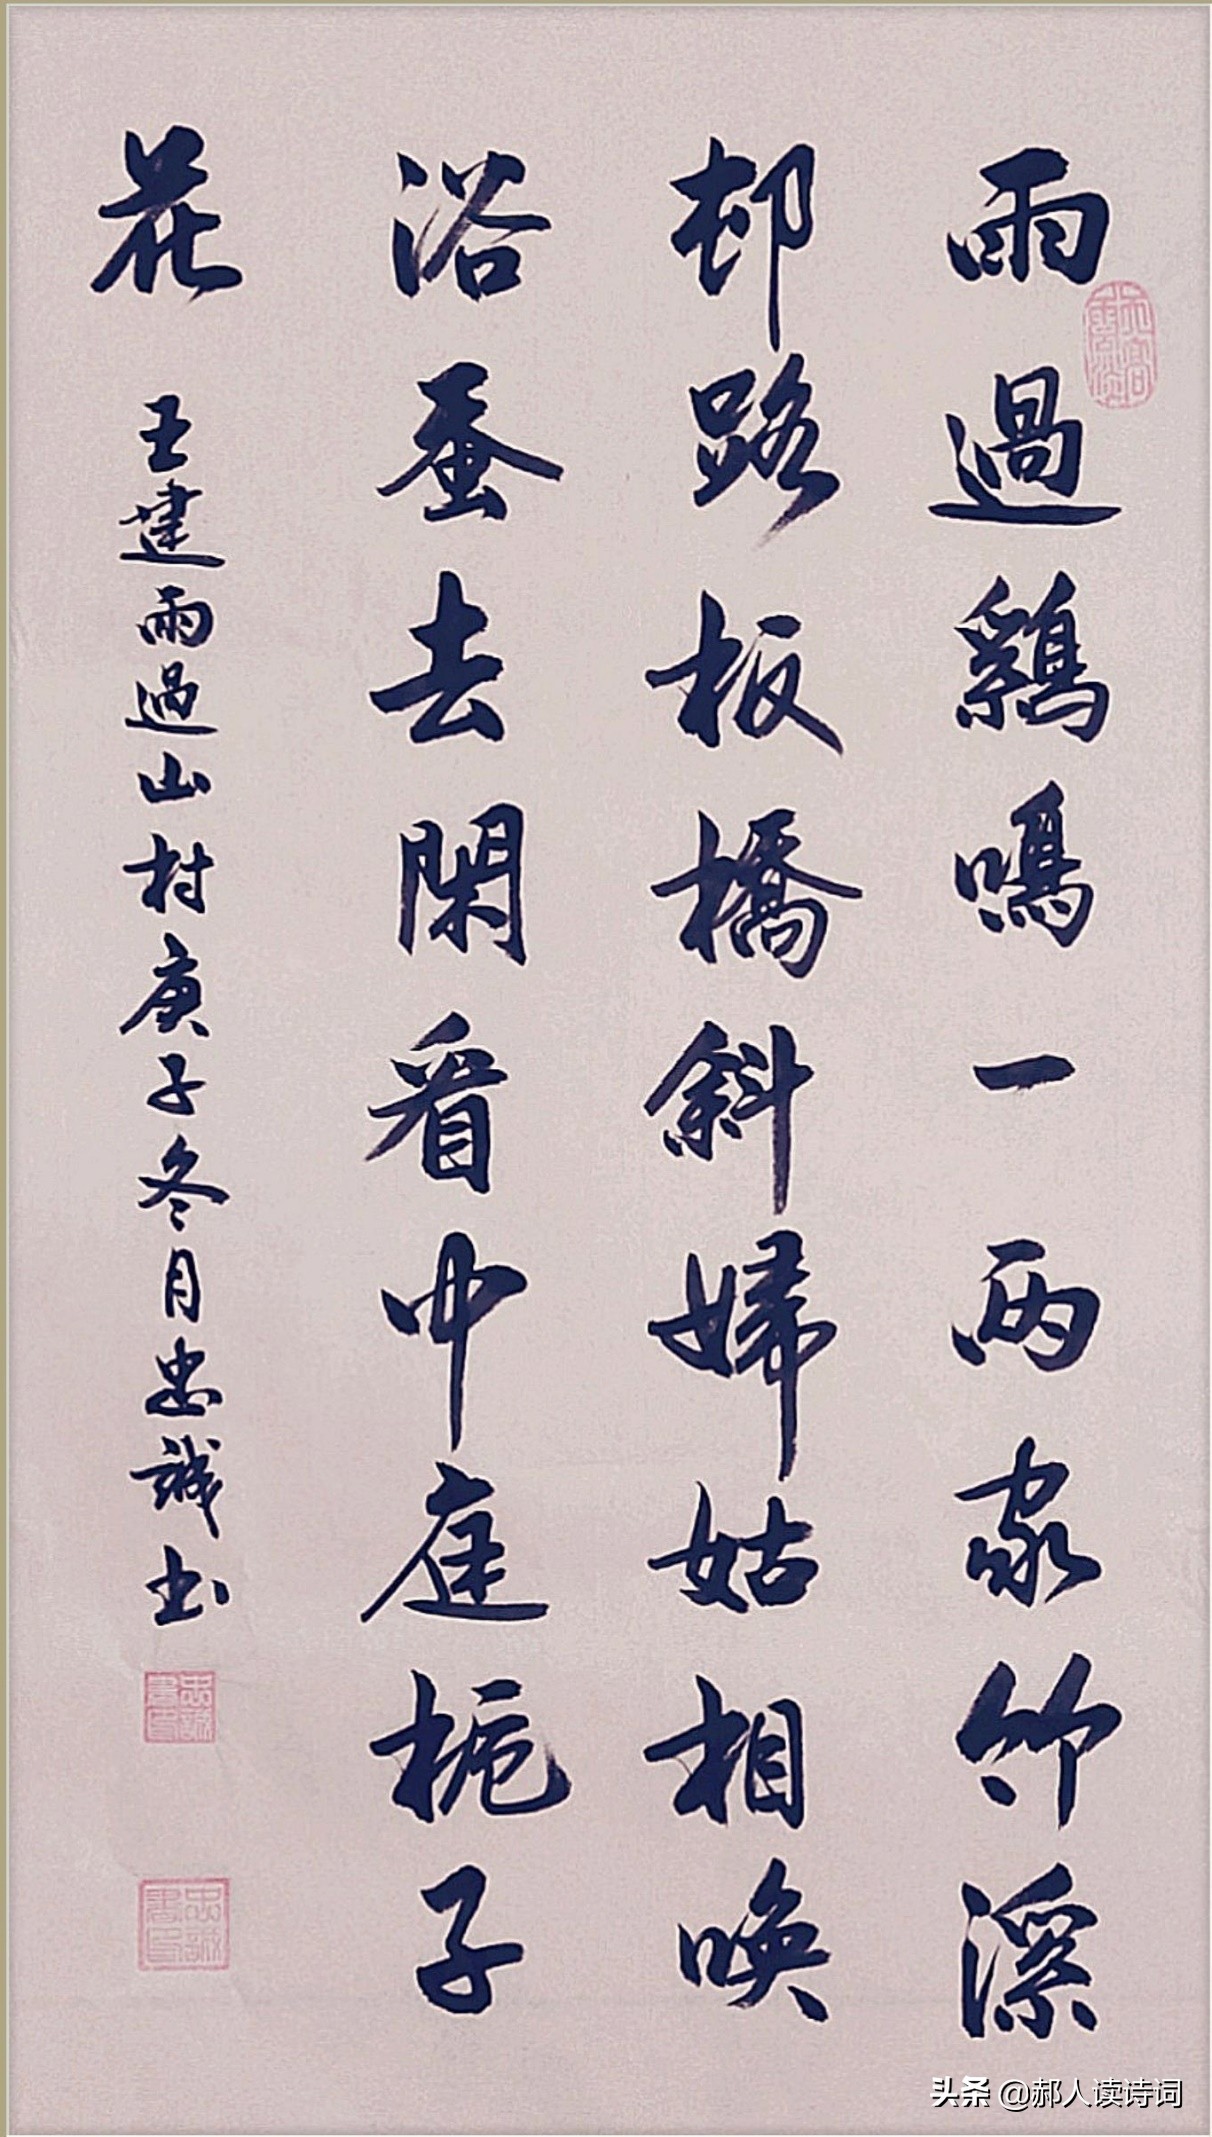 雨過鷄鳴一两家竹溪
邨路板橋斜婦姑相喚
浴蚕去閑看中庭梔子
花
王建雨過山村庚子冬月忠誠书
忠誠書印
忠誠書印
头条 @郝人读诗词